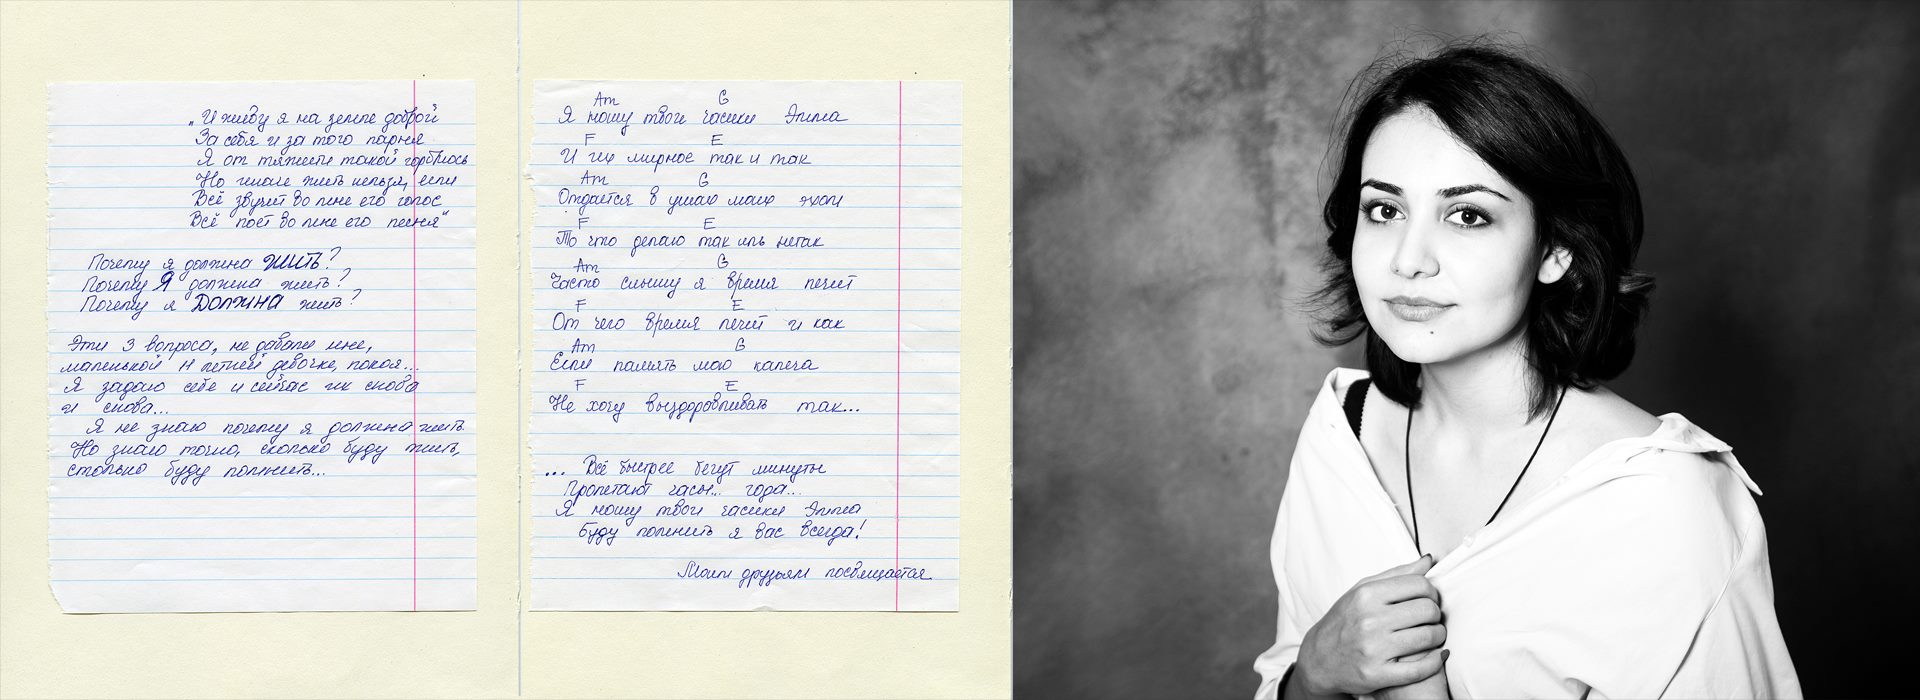 „И живу я на земле доброй
За себя и за того парня
Я от тяжести такой горблюсь
Но иначе жить нельзя, если
Всё звучит во мне его голос
Всё поёт во мне его песня"
Почему я должна ЖИТЬ?
Почему Я должна жить?
Почему я ДОЛЖНА жить?
Эти 3 вопроса, не давали мне,
маленькой 11 летней девочке, покоя...
Я задаю себе и сейчас их снова
и снова...
Я не знаю почему я должна жить.
Но знаю точно, сколько буду жить,
столько буду помнить...
Am G
Я ношу твои часики Эмма
F E
И их мирное так и так
Am G
Отдаётся в ушах моих эхом
F E
То что делаю так иль нетак
Am G
Часто слышу я время лечит
F E
От чего время лечит и как
Am G
Если память мою калеча
F E
Не хочу выздоравливать так...
... Всё быстрее бегут минуты
Пролетают часы... года...
Я ношу твои часики Эмма
Буду помнить я вас всегда!
Моим друзьям посвящается